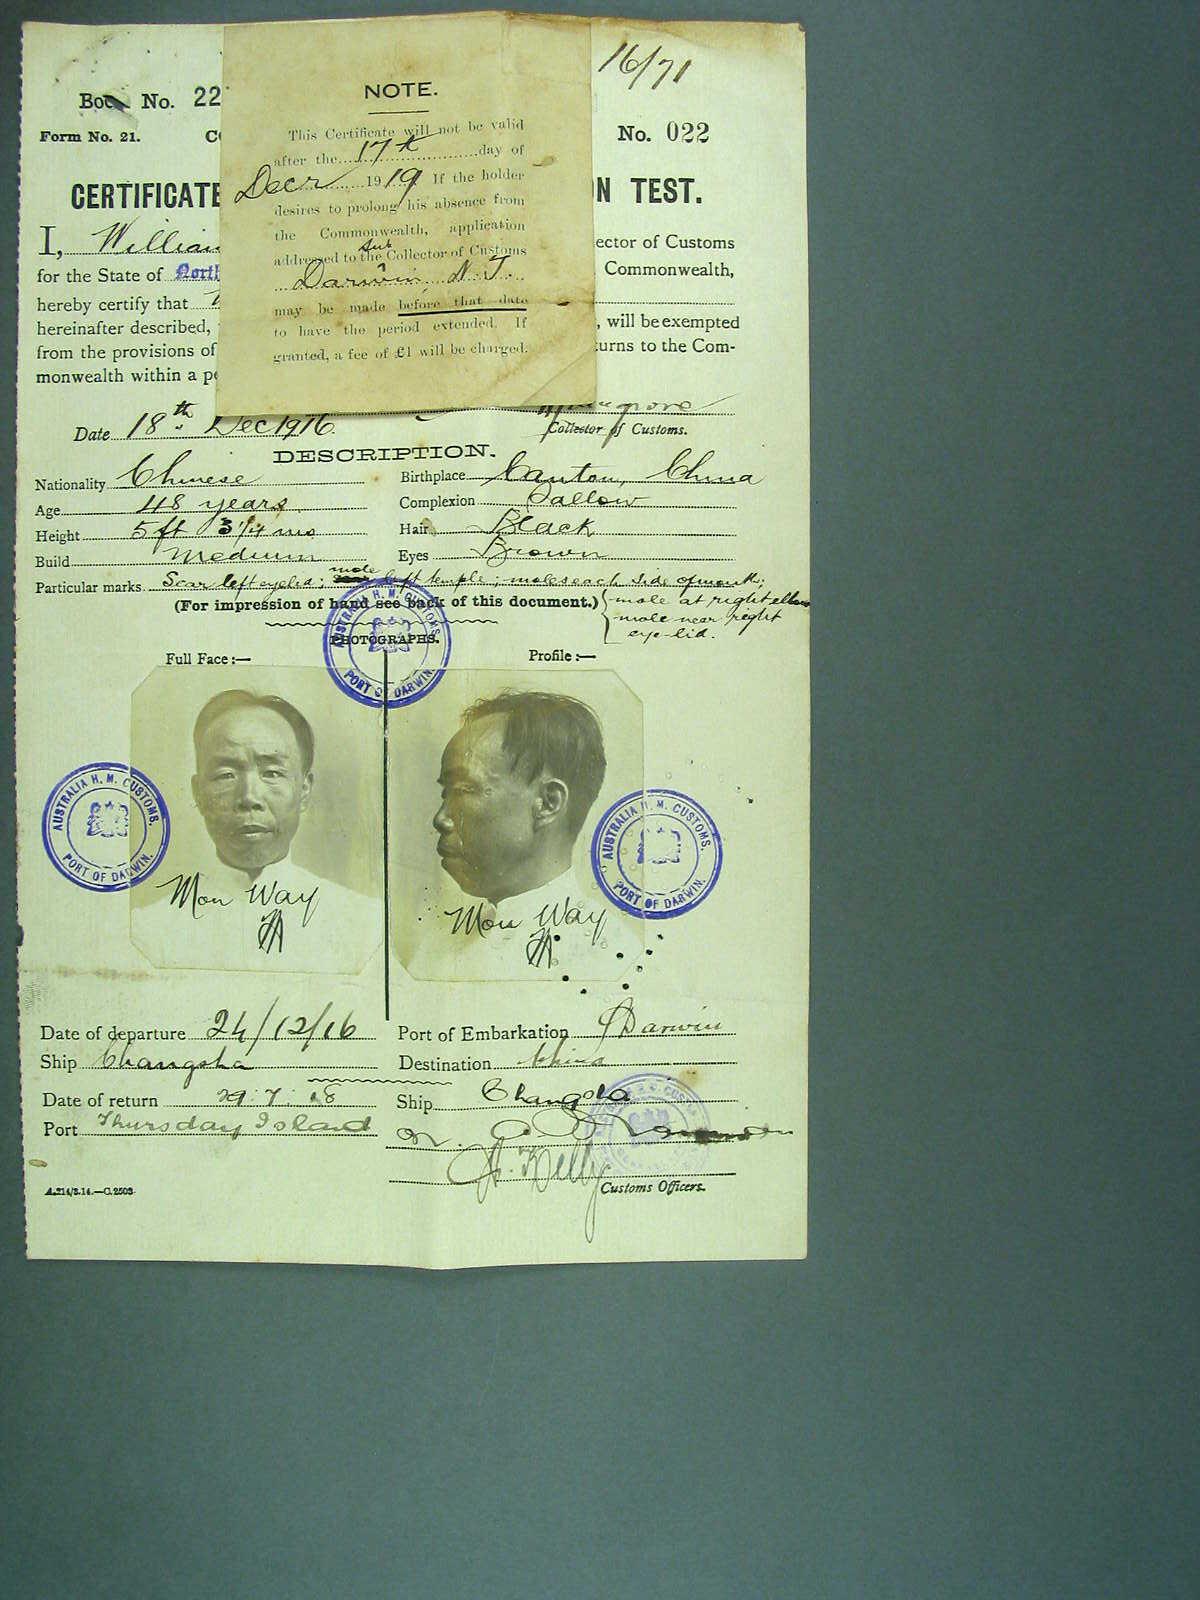 16/71
Book No. 22
No. 022
Form No. 21.
CERTIFICATE
ON TEST.
I, William
ector of Customs
for the State of North
Commonwealth,
hereby certify that
hereinafter described,
, will be exempted
from the provisions of
turns to the Com-
monwealth within a pe
NOTE.
This Certificate will not be valid
after the 17th day of
Decr 1919 If the holder
desires to prolong his absence from
the Commonwealth, application
addressed to the Sub Collector of Customs
Darwin, N.T.
may be made before that date
to have the period extended. If
granted, a fee of £1 will be charged.
Date 18th Dec 1916.
Collector of Customs.
DESCRIPTION.
Nationality Chinese
Birthplace Canton, China
Age 48 years
Complexion Sallow
Height 5 ft 3 1/4 ins
Hair Black
Build Medium
Eyes Brown
Particular marks. Scar left eyelid; mole left temple; moles each side of mouth;
mole at right elbow
mole near right
eye-lid.
(For impression of hand see back of this document.)
PHOTOGRAPHS.
Full Face :—
Profile :—
AUSTRALIA H. M. CUSTOMS.
PORT OF DARWIN.
AUSTRALIA H. M. CUSTOMS.
PORT OF DARWIN.
AUSTRALIA H. M. CUSTOMS.
PORT OF DARWIN.
Mon Way
Mon Way
Date of departure 24/12/16
Port of Embarkation Darwin
Ship Changsha
Destination China
Date of return 29.7.18
Ship Changsha
Port Thursday Island
H. Kelly
Customs Officers.
A.214/3.14.—C.2503.